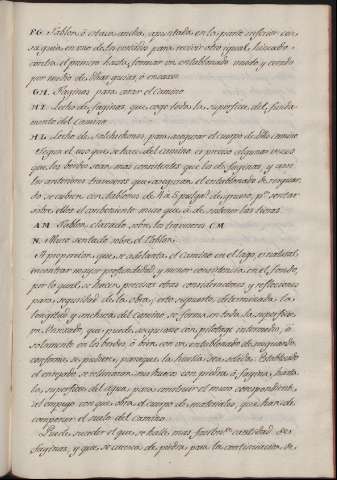 F.G. Tablon, ó estaca ancha, apuntada en la parte inferior con
su guia en uno de los costados para recivir otro igual, hincado
contra el primero hasta formar un entablonado unido y cerrado
por medio de dhas guias, ó encaxes.
G.H. Faginas para cerar el camino
H.I. Lecho de faginas, que coge toda la superficie del funda-
mento del Camino
H.L. Lecho de Salchichones para asegurar el cuerpo de dho camino
Segun el uso que se hace del camino, es preciso algunas veces
que los bordes sean mas constituidos que los de faginas, y para
los anteriores traveseros que aseguran el entablonado de resguar-
do se cubren con tablones de 4 a 5 pulgs. de grueso, ps. sentar
sobre ellos el correspondiente muro que á de sostener las tierras.
A.M. Tablon clavado sobre los traveseros C.M.
N. Muro sentado sobre el Tablon.
A proporcion, que se adelanta el Camino en el lago, es natural
encontrar mayor profundidad, y menor consistencia en el fondo,
por lo qual se hacen precisas otras consideraciones y reflecciones
para seguridad de la obra; esto supuesto, determinada la
longitud y anchura del Camino, se forma en toda la superficie
un Enrexado, que puede asegurarse con pilotage intermedio, ó
solamente en los bordes, ó bien con un entablonado de resguardo,
conforme se pudiere, para que la huella sea solida. Establecido
el enrexado, se rellenarán sus huecos con piedra, ó fagina, hasta
la superficie del agua, para construir el muro correspondiente
al empuje con que obra el cuerpo de materiales, que han de
componer el suelo del camino.
Puede suceder el que se halle mas facilmte. cantidad de
faginas, y que se carezca de piedra para la continuacion de